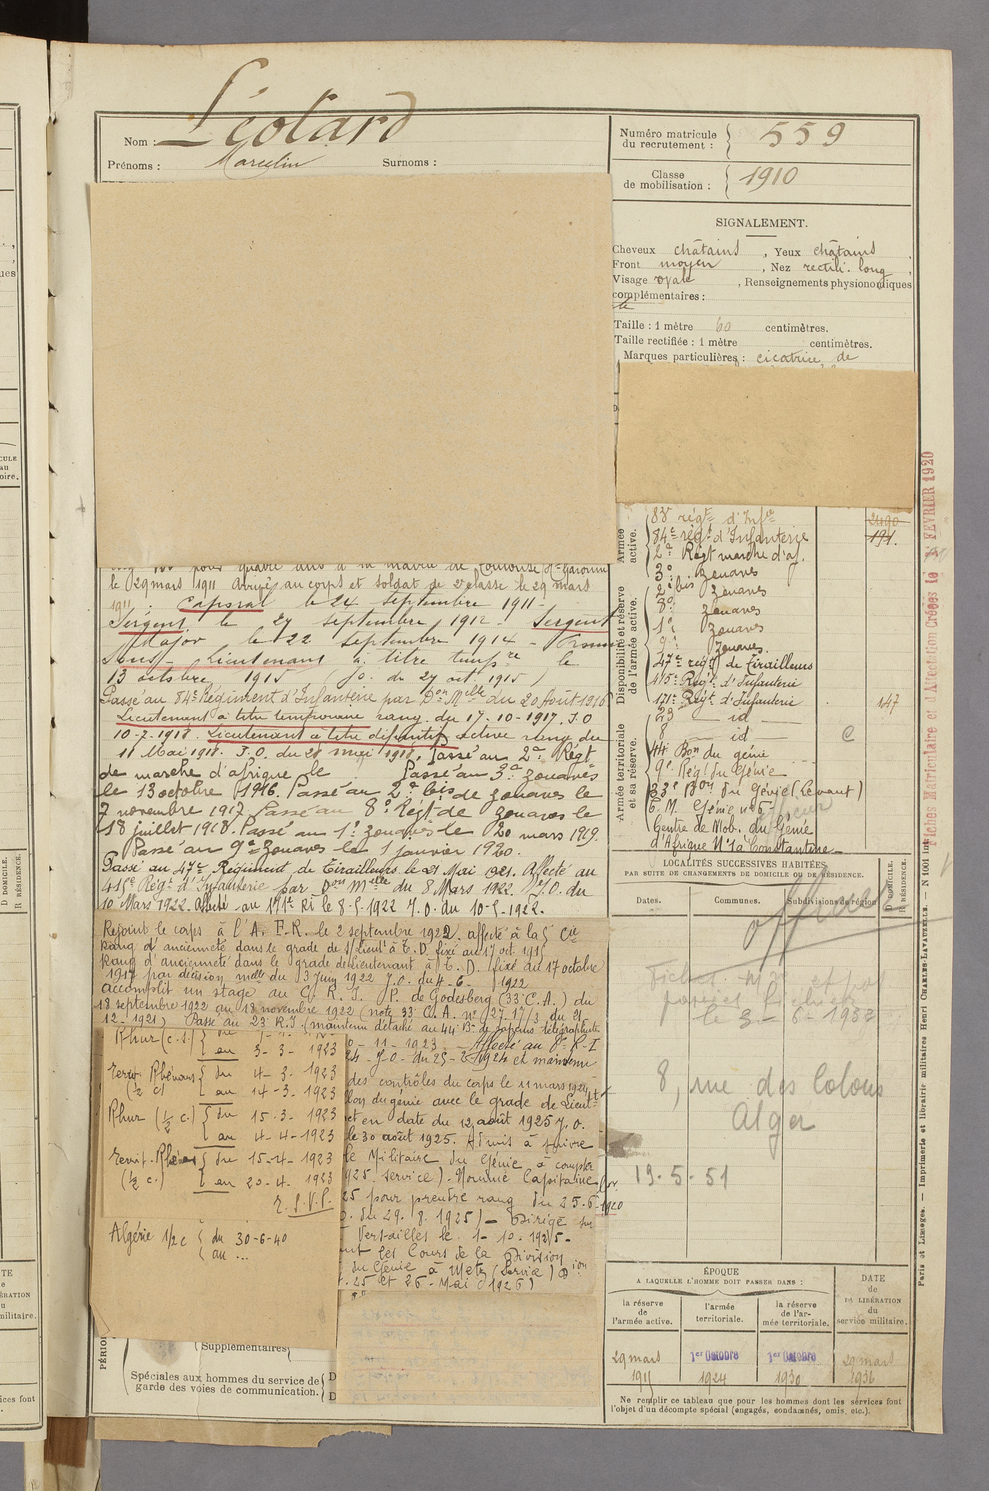 Nom : Léotard
Prénoms : Marcelin Surnoms :
Numéro matricule
du recrutement : 559
Classe
de mobilisation : 1910
SIGNALEMENT.
Cheveux châtains, Yeux châtains,
Front moyen, Nez rectil. long,
Visage ovale, Renseignements physionomiques
complémentaires :
Taille : 1 mètre 60 centimètres.
Taille rectifiée : 1 mètre centimètres.
Marques particulières : cicatrice de
pour quatre ans à la mairie de Toulouse Hte Garonne
le 29 mars 1911 Arrivé au corps et soldat de 2e classe le 29 mars
1911. Caporal le 24 septembre 1911 -
Sergent le 27 septembre 1912 - Sergent
Major le 22 septembre 1914 - Promu
Sous-lieutenant à titre tempre le
13 octobre 1915 (J.O. du 27 oct. 1915)
Passé au 84e Régiment d'Infanterie par Don Mlle du 20 Août 1916
Lieutenant à titre temporaire rang du 17-10-1917. J.O
10-2-1918. Lieutenant à titre définitif active rang du
11 Mai 1918. J.O. du 28 mai 1918. Passé au 2e Régt
de marche d'afrique le Passé au 3e zouaves
le 13 octobre 1916. Passé au 2e bis de zouaves le
7 novembre 1917 Passé au 8e Régt de zouaves le
18 juillet 1918. Passé au 1e zouaves le 20 mars 1919.
Passé au 9e zouaves le 1 janvier 1920.
Passé au 47e Régiment de Tirailleurs le 21 Mai 1921. Affecté au
415e Régt d'Infanterie par Don Mlle du 8 Mars 1922 J.O. du
10 Mars 1922. Affecté au 171e RI le 8-5-1922 J.O. du 10-5-1922.
Rejoint le corps à l'A.F.R. le 2 septembre 1922, affecté à la 5 Cie
Rang d'ancienneté dans le grade de S/Lieut à T.D. fixé au 17 oct. 1915
Rang d'ancienneté dans le grade de Lieutenant à T.D. fixé au 17 octobre
1917 par décision mlle du 3 Juin 1922 J.O. du 4-6-1922
accomplit un stage au C.R.J. P. de Godesberg (33e C.A.) du
18 septembre 1922 au 18 novembre 1922 (note 33e C.A. no 127-17/3 du 21-
12-1921) Passé au 23e R.I. (maintenu détaché au 44e Bn de Sapeurs télégraphistes
0-11-1923 - Affecté au 8e R.I
24 - J.O. du 25-2-1924 et maintenu
des contrôles du corps le 11 mars 1924
llon du génie avec le grade de Lieutt
et en date du 12 août 1925 J.O.
le 30 août 1925. Admis à suivre
le Militaire du Génie à compter
925 service). Nommé Capitaine
25 pour prendre rang du 25-6-1920
o. du 29.8.1925) - Dirigé sur
Versailles le 1-10-1925 -
les Cours de la Division
du Génie à Metz (Service) Don
t. 25 et 26 - Mai 1926)
Rhur (c.s)
au 3-3-1923
Territ. Rhénans du 4-3-1923
(½ c) au 14-3-1923
Rhur (½ c.) du 15-3-1923
au 4-4-1923
Territ. Rhénans du 15-4-1923
(½ c.) au 20-4-1923
T.S.V.P.
Algérie 1/2 c du 30-6-40
au ...
(Supplémentaires
Spéciales aux hommes du service de
garde des voies de communication.
Armée
active.
Disponibilité et réserve
de l'armée active.
Armée territoriale
et sa réserve.
83e régt d'Infie
84e régt d'Infanterie
2e Régt marche d'af.
3e Zouaves
2e bis Zouaves
8e Zouaves
1e Zouaves
9e Zouaves.
47e régt de tirailleurs
415e Régt d'Infanterie
171e Régt d'Infanterie 147
23 — id —
8 — id — C
44 Bon du génie
9e Régt du Génie
33e Bon du Génie (Levant)
C.M. Génie no 67
Centre de Mob. du Génie
d'Afrique No 19 Constantine
LOCALITÉS SUCCESSIVES HABITÉES
PAR SUITE DE CHANGEMENTS DE DOMICILE OU DE RÉSIDENCE.
Dates. Communes. Subdivisions de région
D. DOMICILE.
R. RÉSIDENCE.
le 3-6-1932
8, rue des Colons
Alger
19-5-51
ÉPOQUE
A LAQUELLE L'HOMME DOIT PASSER DANS :
DATE
de
LA LIBÉRATION
du
service militaire.
la réserve
de
l'armée active.
l'armée
territoriale.
la réserve
de l'ar-
mée territoriale.
29 mars
1915
1er Octobre
1924
1er Octobre
1930
29 mars
1936
Ne remplir ce tableau que pour les hommes dont les services font
l'objet d'un décompte spécial (engagés, condamnés, omis, etc.).
Paris et Limoges. — Imprimerie et librairie militaires Henri CHARLES-LAVAUZELLE. — N° 1001
Fiches Matriculaire et d'Affectation Créées le FÉVRIER 1920